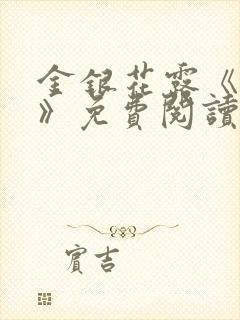 金銀花露《
》免費閱讀
賓吉